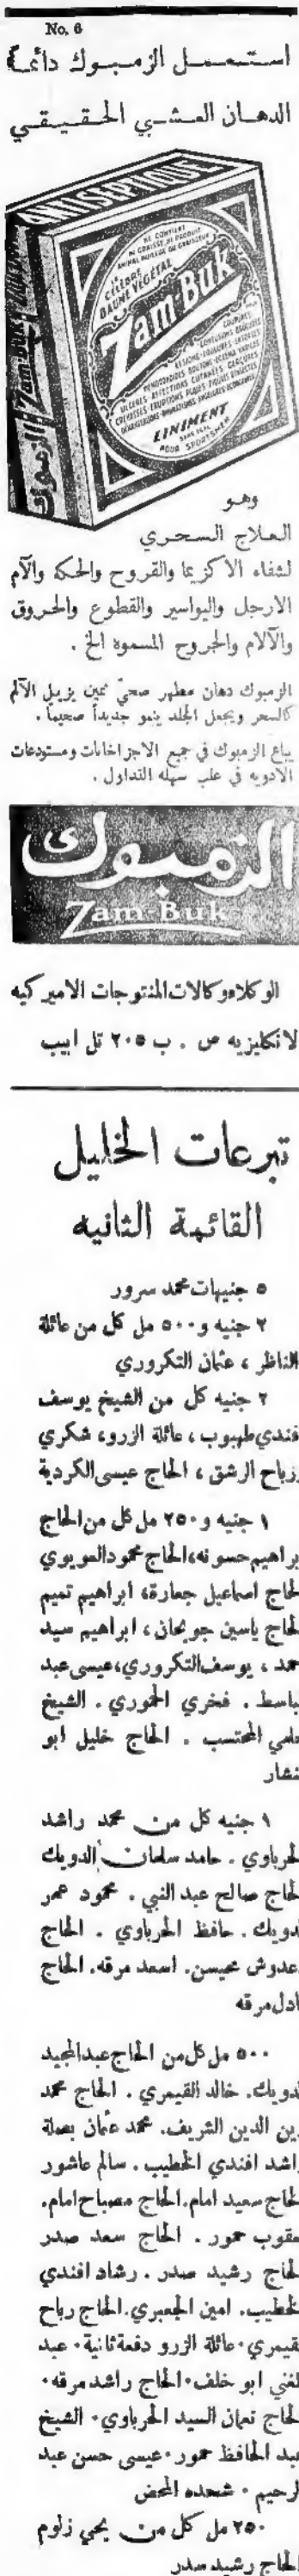 No. 6
استعمل الزمبوك دائماً
الدهان العشبي الحقيقي
ANTISEPTIQUE
NE CONTIENT
NI GRAISSE, NI PRODUIT
ANIMAL
CÉLÈBRE
BAUME VÉGÉTAL
Zam-Buk
LINIMENT
POUR SPORTSMEN
Zam-Buk
الزمبوك
وهو
العلاج السحري
لشفاء الاكزيما والقروح والحكه والآم
الارجل والبواسير والقطوع والحروق
والآلام والجروح المسموه الخ .
الزمبوك دهان مطهر صحيّ ثمين يزيل الآلم
كالسحر ويجعل الجلد ينمو جديداً صحيحاً .
يباع الزمبوك في جميع الاجزاخانات ومستودعات
الادويه في علب سهله التداول .
الزمبوك
Zam-Buk
الوكلاء وكالات المنتوجات الاميركيه
الانكليزيه ص . ب ٢٠٥ تل ابيب
تبرعات الخليل
القائمة الثانيه
٥ جنيهات محمد سرور
٢ جنيه و ٥٠٠ مل كل من عائلة
الناظر ، عثمان التكروري
٢ جنيه كل من الشيخ يوسف
افندي طهبوب ، عائلة الزرو، شكري
ورباح الرشق ، الحاج عيسى الكردية
١ جنيه و ٢٥٠ مل كل من الحاج
ابراهيم حسونه، الحاج محمود العويوي
الحاج اسماعيل جعارة، ابراهيم تميم
الحاج ياسين جويحان ، ابراهيم سيد
احمد ، يوسف التكروري، عيسى عبد
الباسط . فخري الحوري . الشيخ
حلمي المحتسب . الحاج خليل ابو
منشار
١ جنيه كل من محمد راشد
الحرباوي . حامد سلمان الدويك
الحاج صالح عبد النبي . محمود عمر
الدويك . حافظ الحرباوي . الحاج
دعدوش محيسن. اسعد مرقه. الحاج
مرقه
٥٠٠ مل كل من الحاج عبد المجيد
الدويك. خالد القيمري . الحاج محمد
زين الدين الشريف. محمد عثمان بصلة
راشد افندي الخطيب . سالم عاشور
الحاج سعيد امام. الحاج مصباح امام.
يعقوب حمور . الحاج سعد صدر
الحاج رشيد صدر . رشاد افندي
الخطيب. امين الجعبري. الحاج رباح
القيمري . عائلة الزرو دفعة ثانية . عبد
الغني ابو خلف . الحاج راشد مرقه .
الحاج نعمان السيد الحرباوي . الشيخ
عبد الحافظ حمور . عيسى حسن عبد
الرحيم . شحده المحض
٢٥٠ مل كل من يحي زلوم
الحاج رشيد سدر